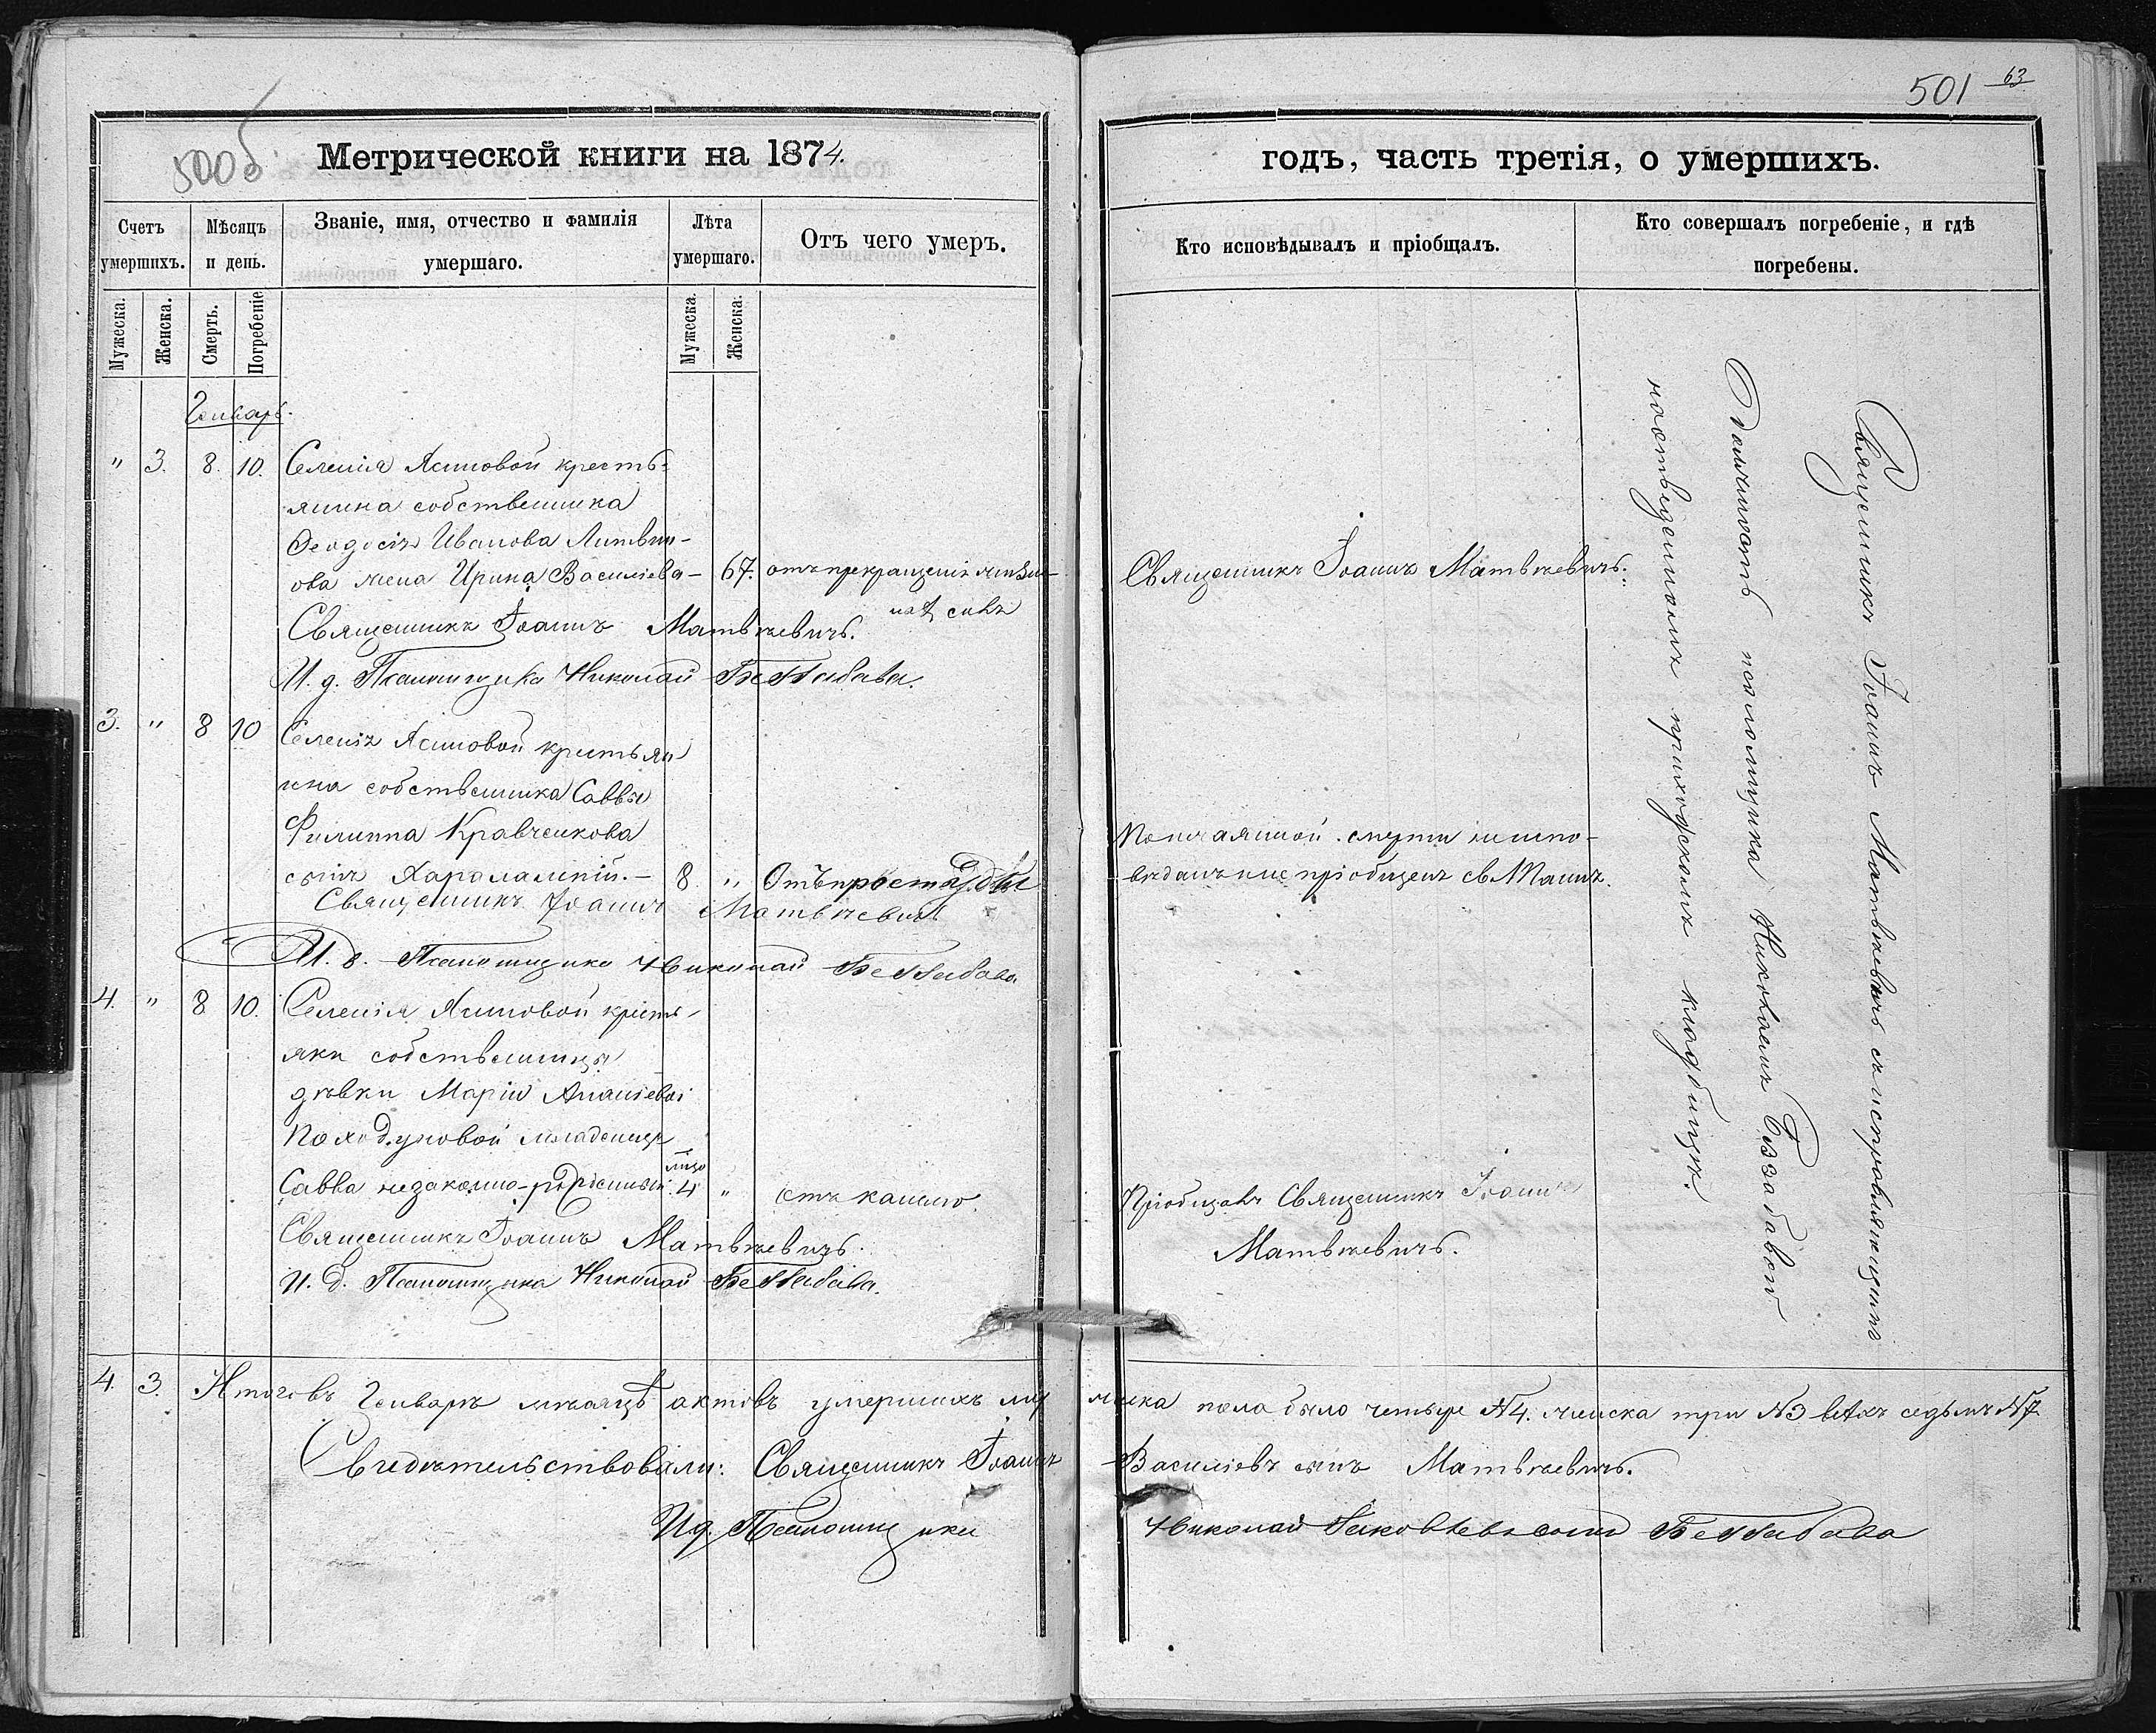 500б
Метрической книги на 1874.
Счетъ умершихъ.
Мѣсяцъ и день.
Званіе, имя, отчество и фамилія умершаго.
Лѣта умершаго.
Отъ чего умеръ.
Мужеска.
Женска.
Смерть.
Погребеніе
Мужеска.
Женска.
Генварь.
" 3. 8. 10. Селенія Ясиновой кресть-
янина собственника
Феодосія Иванова Литвин-
ова жена Ирина Василіева – 67. отъ прекращенія жизне-
ныхъ силъ
Священникъ Іоаннъ Матвѣевичъ.
И. д. Псаломщика Николай Беззабава.
3. " 8 10 Селенія Ясиновой крестьян
ина собственника Саввы
Филиппа Кравченкова
сынъ Харалампій. – 8 " Отъ простуды
Священникъ Іоаннъ Матвѣевичъ
И. д. Псаломщика Николай Беззабава
4. " 8 10. Селенія Ясиновой кресть-
янки собственницы
дѣвки Маріи Ананіевой
младенецъ
Савва незаконно-рожденный. 4 " отъ кашлю.
Священникъ Іоаннъ Матвѣевичъ.
И. д. Псаломщика Николай Беззабава.
4. 3. Итого въ Генварѣ мѣсяцѣ актовъ умершихъ му
Свидѣтельствовали: Священникъ Іоаннъ
И д. Псаломщика
501 63
годъ, часть третія, о умершихъ.
Кто исповѣдывалъ и пріобщалъ.
Кто совершалъ погребеніе, и гдѣ погребены.
Священникъ Іоаннъ Матвѣевичъ.
По нечаянной смерти неиспо-
вѣданъ и не пріобщенъ св. Таинъ.
Пріобщалъ Священникъ Іоаннъ
Матвѣевичъ.
Священникъ Іоаннъ Матвѣевичъ съ исправляющимъ
должность псаломщика Николаемъ Беззабавою
на отведенномъ приходскомъ кладбищѣ.
жеска пола было четыре №4. женска три №3 всѣхъ седьмъ №7
Василіевъ сынъ Матвѣевичъ.
Николай Яковлевъ сынъ Беззабава